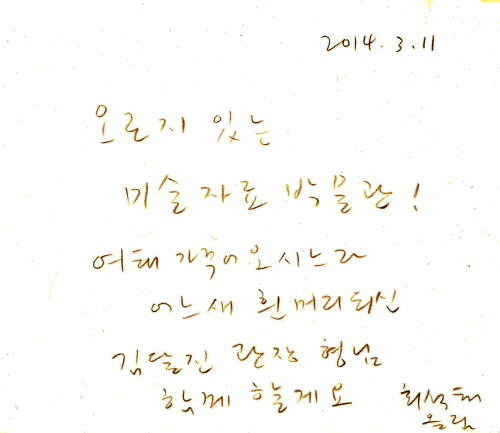 2014. 3. 11
오로지 있는
미술자료 박물관!
여태 가꾸어오시느라
어느새 흰머리되신
김달진 관장 형님
함께 할게요 최석태
올림